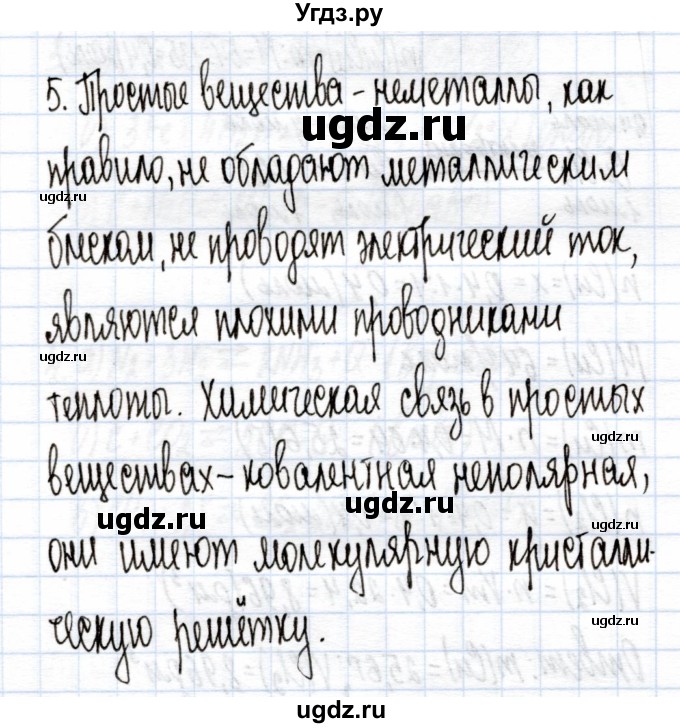 Угдз.ру
5. Простые вещества - неметаллы, как
ugdz.ru
правило, не обладают металлическим
ugdz.ru
блеском, не проводят электрический ток,
ugdz.ru
являются плохими проводниками
ugdz.ru
теплоты. Химическая связь в простых
ugdz.ru
веществах - ковалентная неполярная,
ugdz.ru
ugdz.ru
они имеют молекулярную кристалли-
ugdz.ru
ческую решётку.
ugdz.ru